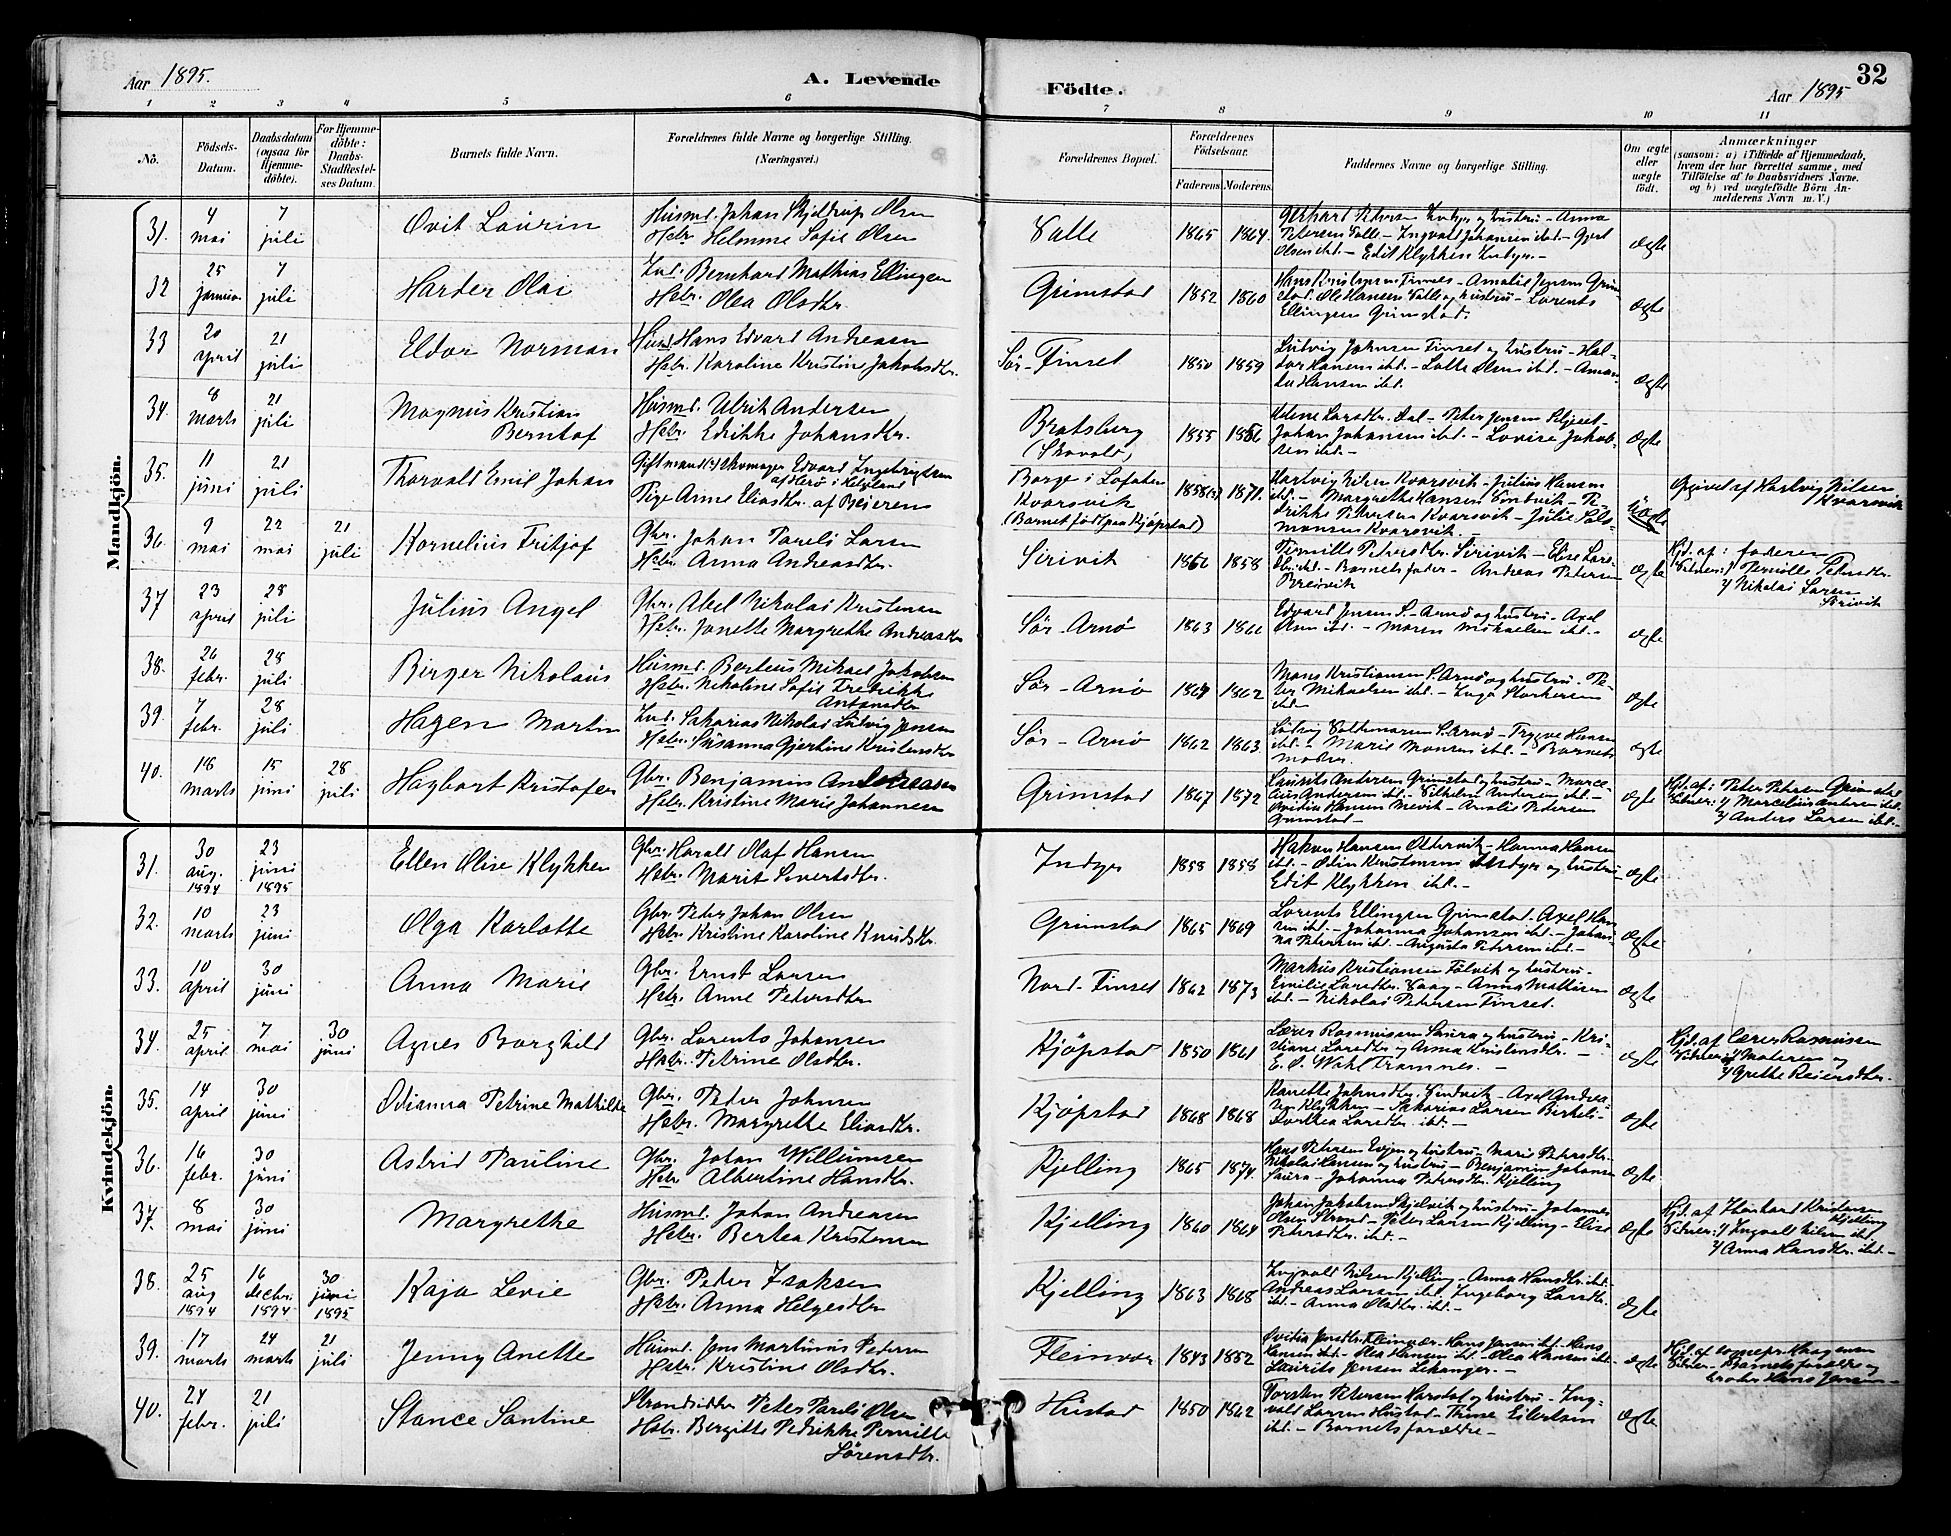 Aar 1895.
A. Levende
Födte.
Aar 1895
32
1 2 3 4 5 6 7 8 9 10 11
No.
Födsels-Datum.
Daabsdatum (ogsaa for Hjemme-döbte).
For Hjemme-döbte: Daabs-Stadfæstel-ses Datum.
Barnets fulde Navn.
Forældrenes fulde Navne og borgerlige Stilling. (Næringsvei.)
Forældrenes Bopæl.
Forældrenes Födselsaar.
Faderens Moderens
Faddernes Navne og borgerlige Stilling.
Om ægte eller uægte födt.
Anmærkninger
(saasom: a) i Tilfælde af Hjemmedaab, hvem der har forrettet samme, med Tilföielse af to Daabsvidners Navne, og b) ved uægtefödte Börn An-melderens Navn m. V.)
Mandkjön.
31. 4 mai 7 juli Ovit Laurin
Husmd. Johan Skjeldrup Olsen
Hstr. Helmine Sofie Olsen
Valle 1865 1864. ægte
32 25 januar 7 juli Harder Olai
Ind. Bernhard Mathias Ellingsen
Hstr. Olea Olsdtr.
Grimstad 1852 1860
Ellingsen Grimstad. ægte
33 20 april 21 juli Eldor Norman
Husmd Hans Edvard Andreasen
Hstr. Karoline Kristine Jakobsdtr.
Sör-Finset 1850 1859
Ludvig Johnsen Finset og hustru - Hal-
dor Hansen ibd. - Lotte Olsen ibd. - Aman-
da Hansen ibd. ægte
34. 8 marts 21 juli Magnus Kristian Berntof
Husmd. Ulrik Andersen
Hstr. Edrikke Johansdtr.
Bratsberg (Skavold) 1855 1856
Johan Johansen ibd. - Lovise Jakob-
sen ibd. - ægte
35. 11 juni 21 juli Thorvald Emil Johan
Gift mand (?) Skomager Edvard Ingebrigtsen
af Herö i Helgeland
Pige Anne Eliasdtr. af Beieren
Borge i Lofoten
Kvarsvik
(Barnet födt paa Kjöpstad)
1858(?) 1871.
Hartvig Nilsen Kvarsvik - Julius Hansen
ibd. - Margrethe Hansen Sandvik - Pe-
drikke Petersen Kvarsvik - Julie Salo-
monsen Kvarsvik. - uægte
Opgivet af Hartvig Nilsen
Kvarsvik
36. 9 mai 22 mai 21 juli Kornelius Fritjof
Gbr. Johan Pareli Larsen
Hstr. Anna Andreasdtr.
Sirivik 1862 1858
Pernille Petersdtr. Sirivik - Elise Lars-
dtr. ibd. - Barnets fader - Andreas Petersen
Breivik ægte
Hjd. af: faderen
Vidner: 1/ Pernille Petersdtr.
2/ Nikolai Larsen
Sirivik
37 23 april 28 juli Julius Angel
Gbr. Abel Nikolai Kristensen
Hstr. Janette Margrethe Andreasdtr
Sör-Arnö 1863 1866
Edvard Jensen S.-Arnö og hustru - Axel
Olsen ibd. - Maren Mikaelsen ibd. - ægte
38. 26 febr. 28 juli Birger Nikolaus
Husmd. Borteus Mikael Jakobsen
Hstr. Nikoline Sofie Fredrikke
Antonsdtr
Sör-Arnö 1864 1862
Mons Kristiansen S. Arnö og hustru - Pe-
ter Mikaelsen ibd. - Inga Storkersen
ibd. ægte
39. 7 febr. 28 juli Hagen Martin
Ind. Sakarias Nikolai Ludvig Jensen
Hstr. Susanna Gjertine Kristensdtr
Sör-Arnö 1862 1863
Ludvig Voldemarsen S. Arnö - Trygve Hansen
ibd. - Marie Monsen ibd. - Barnets
moder. ægte
40. 18 marts 15 juni 28 juli Hagbart Kristofer
Gbr. Benjamin Andreasen
Hstr. Kristine Marie Johannesen
Grimstad 1867 1872
Laurits Andersen Grimstad og hustru - Marce-
lius Andersen ibd. - Vilhelm Andersen ibd. -
Ovidia Hansen Mevik - Amalie Pedersen
Grimstad - ægte
Hjd. af: Peter Petersen Grimstad
Vidner: 1/ Marcelius Andersen ibd.
2/ Anders Larsen ibd. -
Kvindekjön.
31. 30 aug. 1894 23 juni 1895 Ellen Olise Klykken
Gbr. Harald Olaf Hansen
Hstr. Marit Sivertsdtr.
Indyr 1858 1858
Hakon Hansen Oldervik - Hanna Hansen
Edit Klykken ibd. - ægte
32. 10 marts 23 juni Olga Karlotte
Gbr. Peder Johan Olsen
Hstr. Kristine Karoline Knudsdtr.
Grimstad 1865 1869
Lorents Ellingsen Grimstad - Axel Han-
sen ibd. - Johanna Johansen ibd. - Johan-
na Petersen ibd. - Augusta Petersen ibd. - ægte
33. 10 april 30 juni Anna Marie
Gbr. Ernst Larsen
Hstr. Anne Pedersdtr
Nord-Finset 1862 1873
Markus Kristiansen Fölvik og hustru -
Emilie Larsdtr. Saag - Anna Mathisen
ibd. - Nikolai Petersen Finset. ægte
34. 25 april 7 mai 30 juni Agnes Borghild
Gbr. Lorents Johansen
Hstr. Petrine Olsdtr.
Kjöpstad 1850 1861
Lærer Rasmussen Saura og hustru - Kri-
stiane Larsdtr og Anna Kristensdtr. -
E. O. Wahl Tramnes. - ægte
Hjd. af Lærer Rasmussen
Vidner: 1/ Moderen og
2/ Grethe Reiersdtr.
35. 14 april 30 juni Odianna Petrine Mathilde
Gbr. Peder Johnsen
Hstr. Margrethe Eliasdtr.
Kjöpstad 1868 1868
Hanette Johnsdtr. Sandvik - Axel Andrea-
sen Klykken - Sakarias Larsen Birkeli -
Dorthea Larsdtr. ibd. - ægte
36. 16 febr. 30 juni Astrid Pauline
Gbr. Johan Willumsen
Hstr Albertine Hansdtr.
Kjelling 1865 1874.
Hans Petersen Evjen og hustru - Marie Petersdtr.
Nikolai Hansen og hustru - Benjamin Johansen
Saura - Johanna Petersdtr. Kjelling ægte
37. 8 mai 30 juni Margrethe
Husmd. Johan Andreasen
Hstr. Bertea Kristensen
Kjelling 1860 1864
Johan Jakobsen Skjelvik og hustru - Johannes
Olsen Strand - Peter Larsen Kjelling - Elise
Petersdtr. ibd. - ægte
Hjd. af Thonhard Kristensen
Kjelling
Vidner: 1/ Ingvald Nilsen ibd.
2/ Anna Hansdtr. ibd. -
38. 25 aug 1894 16 decbr. 1894 30 juni 1895 Kaja Levie
Gbr. Peder Isaksen
Hstr. Anna Helgesdtr
Kjelling 1863 1868
Ingvald Nilsen Kjelling - Anna Hansdtr. ibd. -
Andreas Larsen ibd. Ingeborg Larsdtr.
ibd. - Anna Olsdtr. ibd. - ægte
39. 17 marts 24 marts 21 juli Jenny Anette
Husmd. Jens Martinus Pedersen
Hstr. Kristine Olsdtr.
Fleinvær 1843 1852
Ovidia Jensdtr. Fleinvær - Hans Jensen ibd. - Hans
Hansen ibd. - Olea Hansen ibd. - Olea Hansen ibd. -
Laurits Jensen Lekanger. - ægte
Hjd. af sognepr. Haagensen
Vidner - Barnets forældre og
broder Hans Jensen -
40. 24 febr. 21 juli Stance Santine
Strandsidder Peter Pareli Olsen
Hstr. Bergitte Pedrikke Pernille
Sörensdtr.
Hustad 1850 1862
Torsten Petersen Harstad og hustru - Ing-
vald Larsen Hustad - Trine Eilertsen
ibd. - Barnets forældre - ægte